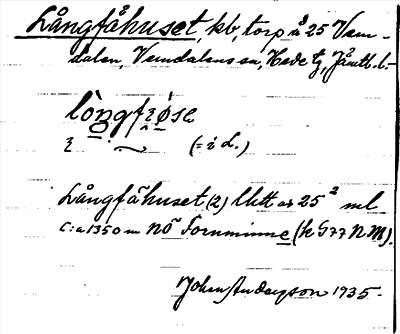 Långfåhuset, kb, torp å 25 Vem-
dalen, Vemdalens sn, Hede tg, Jämtl. l.
(= i d.)
Långfåhuset (2) litt ar 25² ml
c:a 1350 m NÖ Fornminne (k G77 NM).
Johan Anderson 1935.